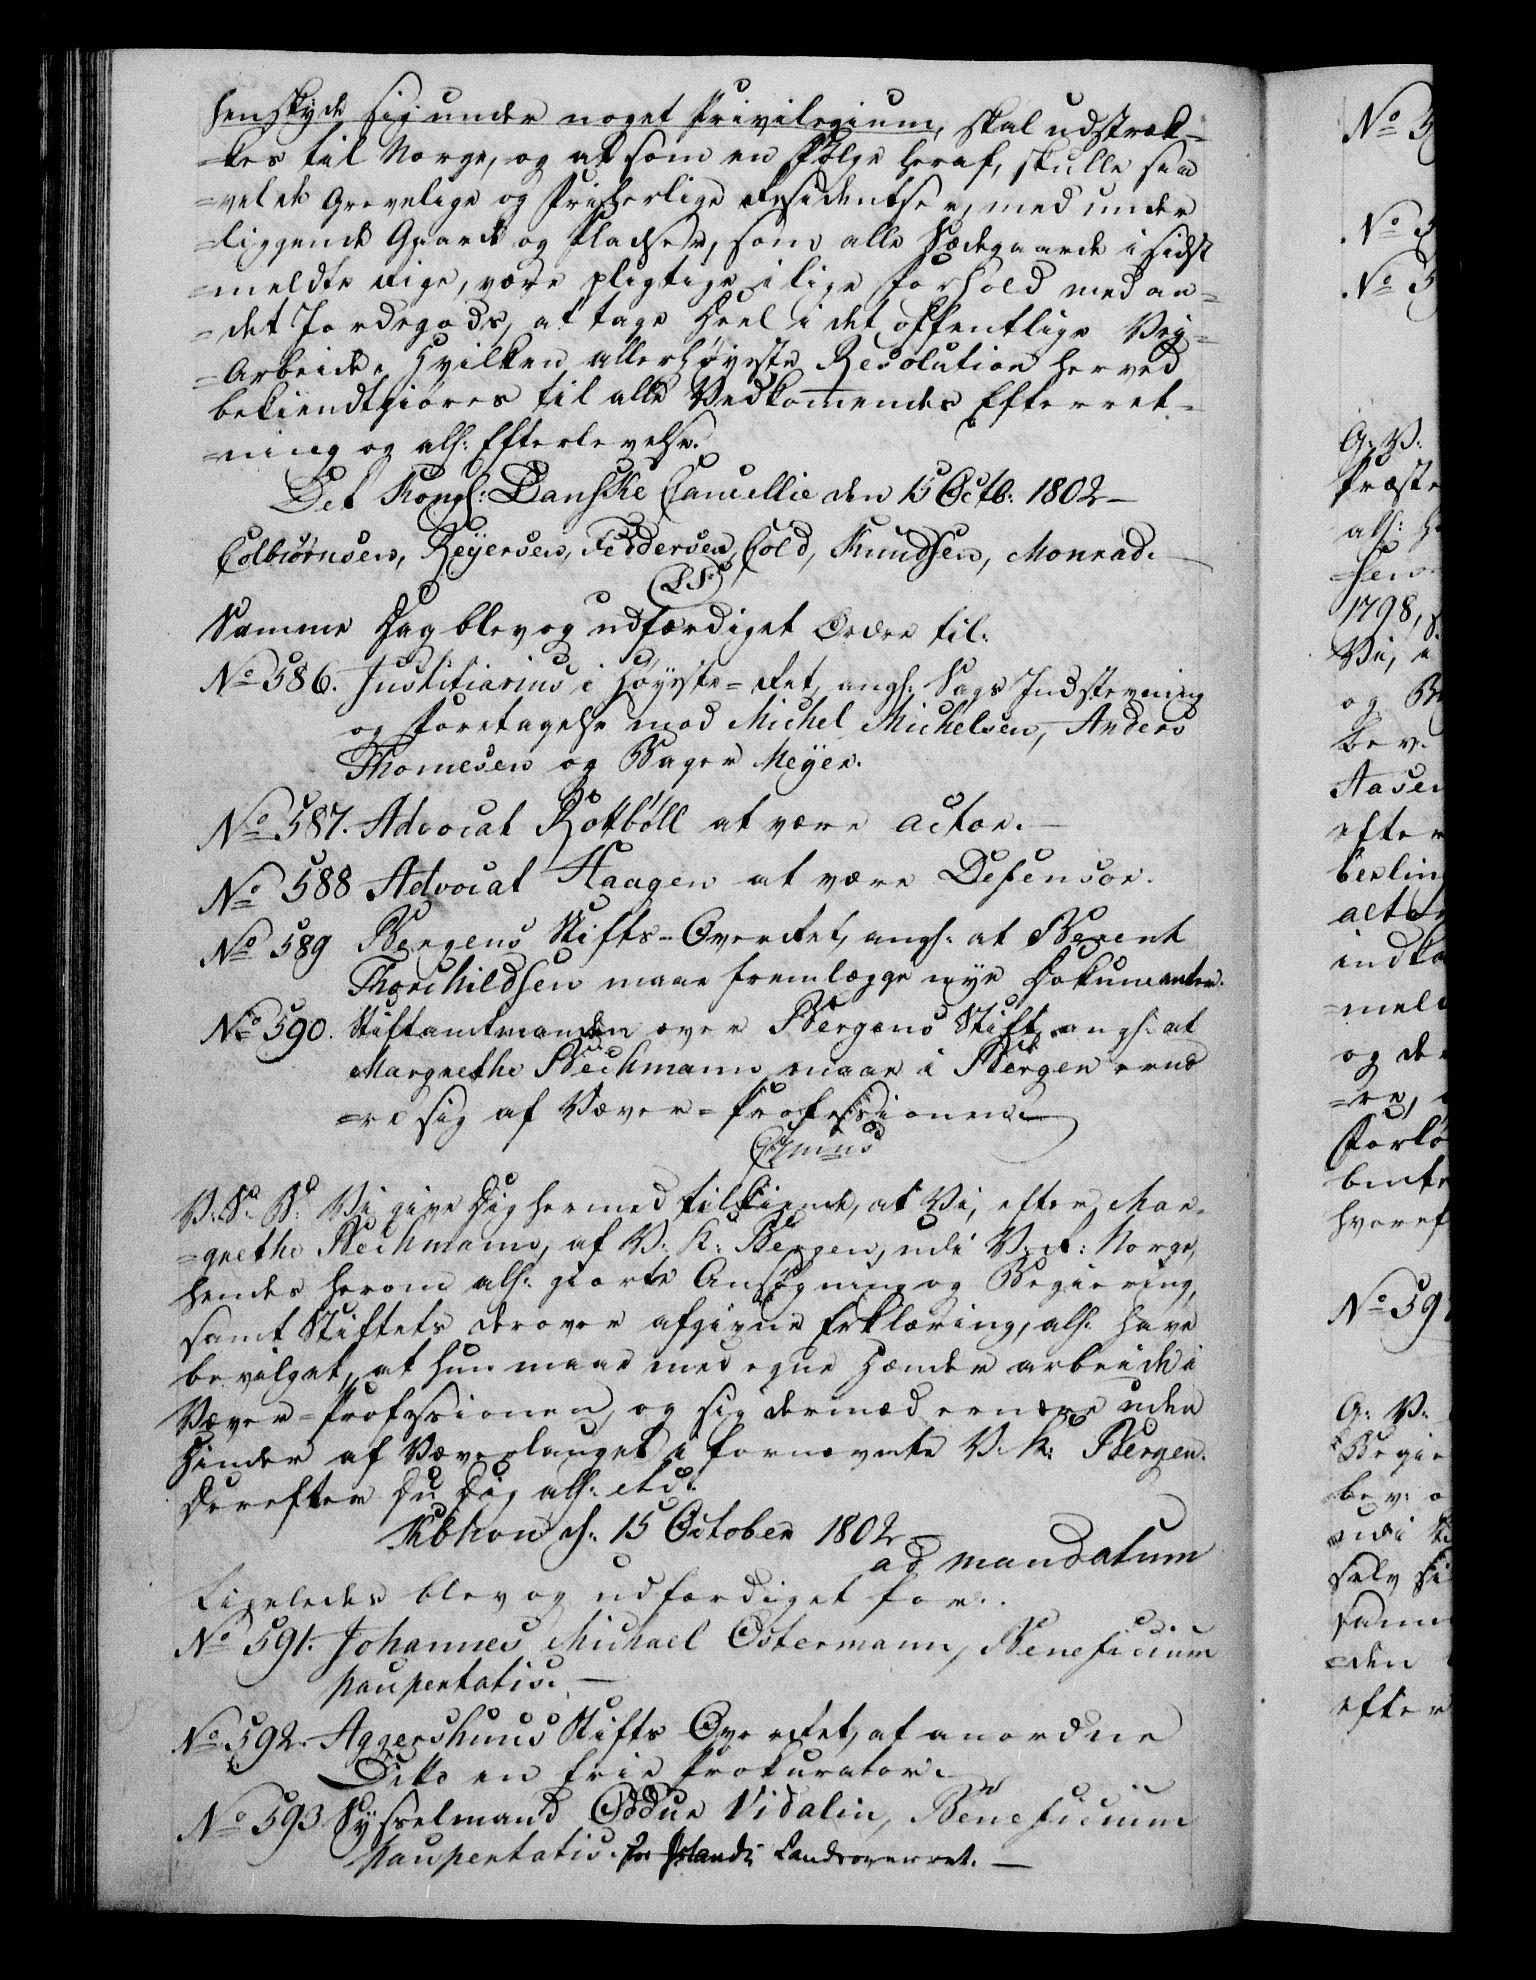 henskyde sig under noget Privilegium, skal udstræk-
=kes til Norge, og at som en Følge heraf, skulle saa
=vel de Grevelige og Friherlige Residentser, med under
=liggende Gaarde og Pladser, som alle Sædegaarde i sidst
=meldte Rige, være pligtige i lige Forhold med an=
=det Jordegods, at tage Deel i det offentlige Vej=
=Arbeide. Hvilken allerhøyeste Resolution herved
bekiendtgiøres til alle Vedkommendes Efterret-
=ning og all: Efterlevelse.
Det Kongl: Danske Cancellie den 15 Octb: 1802 –
Colbiørnsen, Reÿersen, Feddersen, Cold, Knudsen, Monrad.
(L.S.)
Samme Dag blev og udfærdiget Ordre til:
No 586. Justitiarius i Høyeste=Ret, angl: Sags Indstevning
og Foretagelse mod Michel Michelsen, Anders
Thomesen og Bager Meÿer.
No 587. Advocat Rottbøll at være actor. –
No 588 Advocat Haagen at være Defensor.
No 589 Bergens Stifts-Overret, angl: at Berent
Thorchildsen maae fremlægge nye Dokumenter.
No 590. Stiftamtmanden over Bergens Stift, angl: at
Margrethe Beckmann maae i Bergen ernæ
=re sig af Væver=Professionen.

V. S. B: Vi give Dig hermed tilkiende, at Vi, efter Mar-
=grethe Beckmann, af V: K: Bergen, udi V: R: Norge,
hendes herom all: giorte Ansøgning og Begiering,
samt Stiftets derover afgivne Erklæring, all: have
bevilget, at hun maae med egne Hænder arbeide i
Væver=Professionen, og sig dermed ernære uden
Hinder af Væverlauget i fornævnte V. K: Bergen.
Derefter Du Dig all: etc:
Kbhvn d: 15 October 1802 –
ad mandatum
Ligeledes blev og udfærdiget for:
No 591. Johannes Michael Ostermann, Beneficium
paupertatis. –
No 592. Aggershuus Stifts Overret, at anordne
Ditto en frie Prokurator.
No 593 Sysselmand Oddur Vidalin, Beneficium
paupertatis. for Islands Landsoverret. –